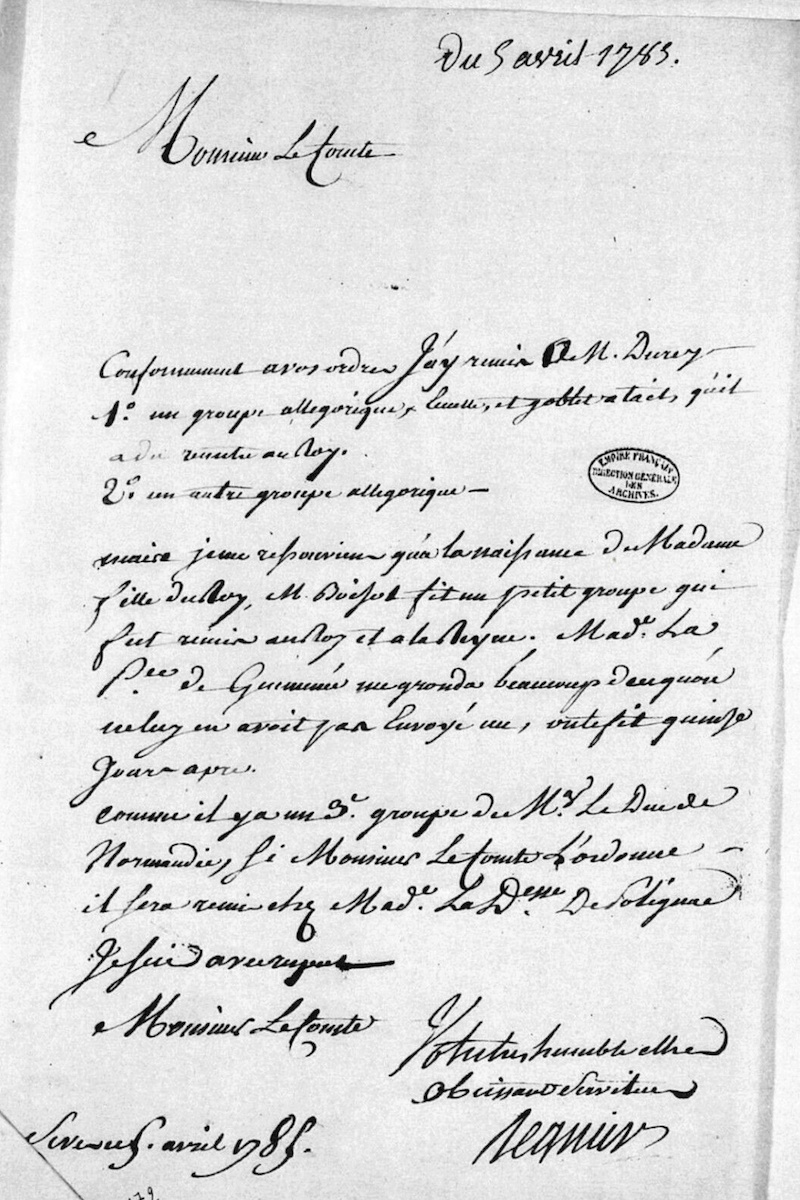 Du 5 avril 1785.
Monsieur Le Comte
Conformement a vos ordres J'ay remis A M. Durey
1.° un groupe allegorique, Ecuelle, et goblet a lait, qu'il
a du remettre au Roy.
2.° un autre groupe allegorique —
EMPIRE FRANÇAIS
DIRECTION GÉNÉRALE
DES
ARCHIVES.
mais je me ressouviens qu'a la naissance de Madame
fille du Roy, M. Boizot fit un petit groupe qui
fut remis au Roy et a la Reyne. Mad.e La
P.ee de Guemené me gronda beaucoup de ce qu'on
ne luy en avoit pas Envoyé un, on le fit quinze
Jours apre.
comme il y a un 3.e groupe de M.gr Le Duc de
Normandie, Si Monsieur Le Comte L'ordonne —
il sera remi chez Mad.e La D.esse De Polignac
Je Suis avec respect
Monsieur Le Comte
Votre tres humble et tres
obeissant Serviteur
Regnier
Seve ce 5. avril 1785.